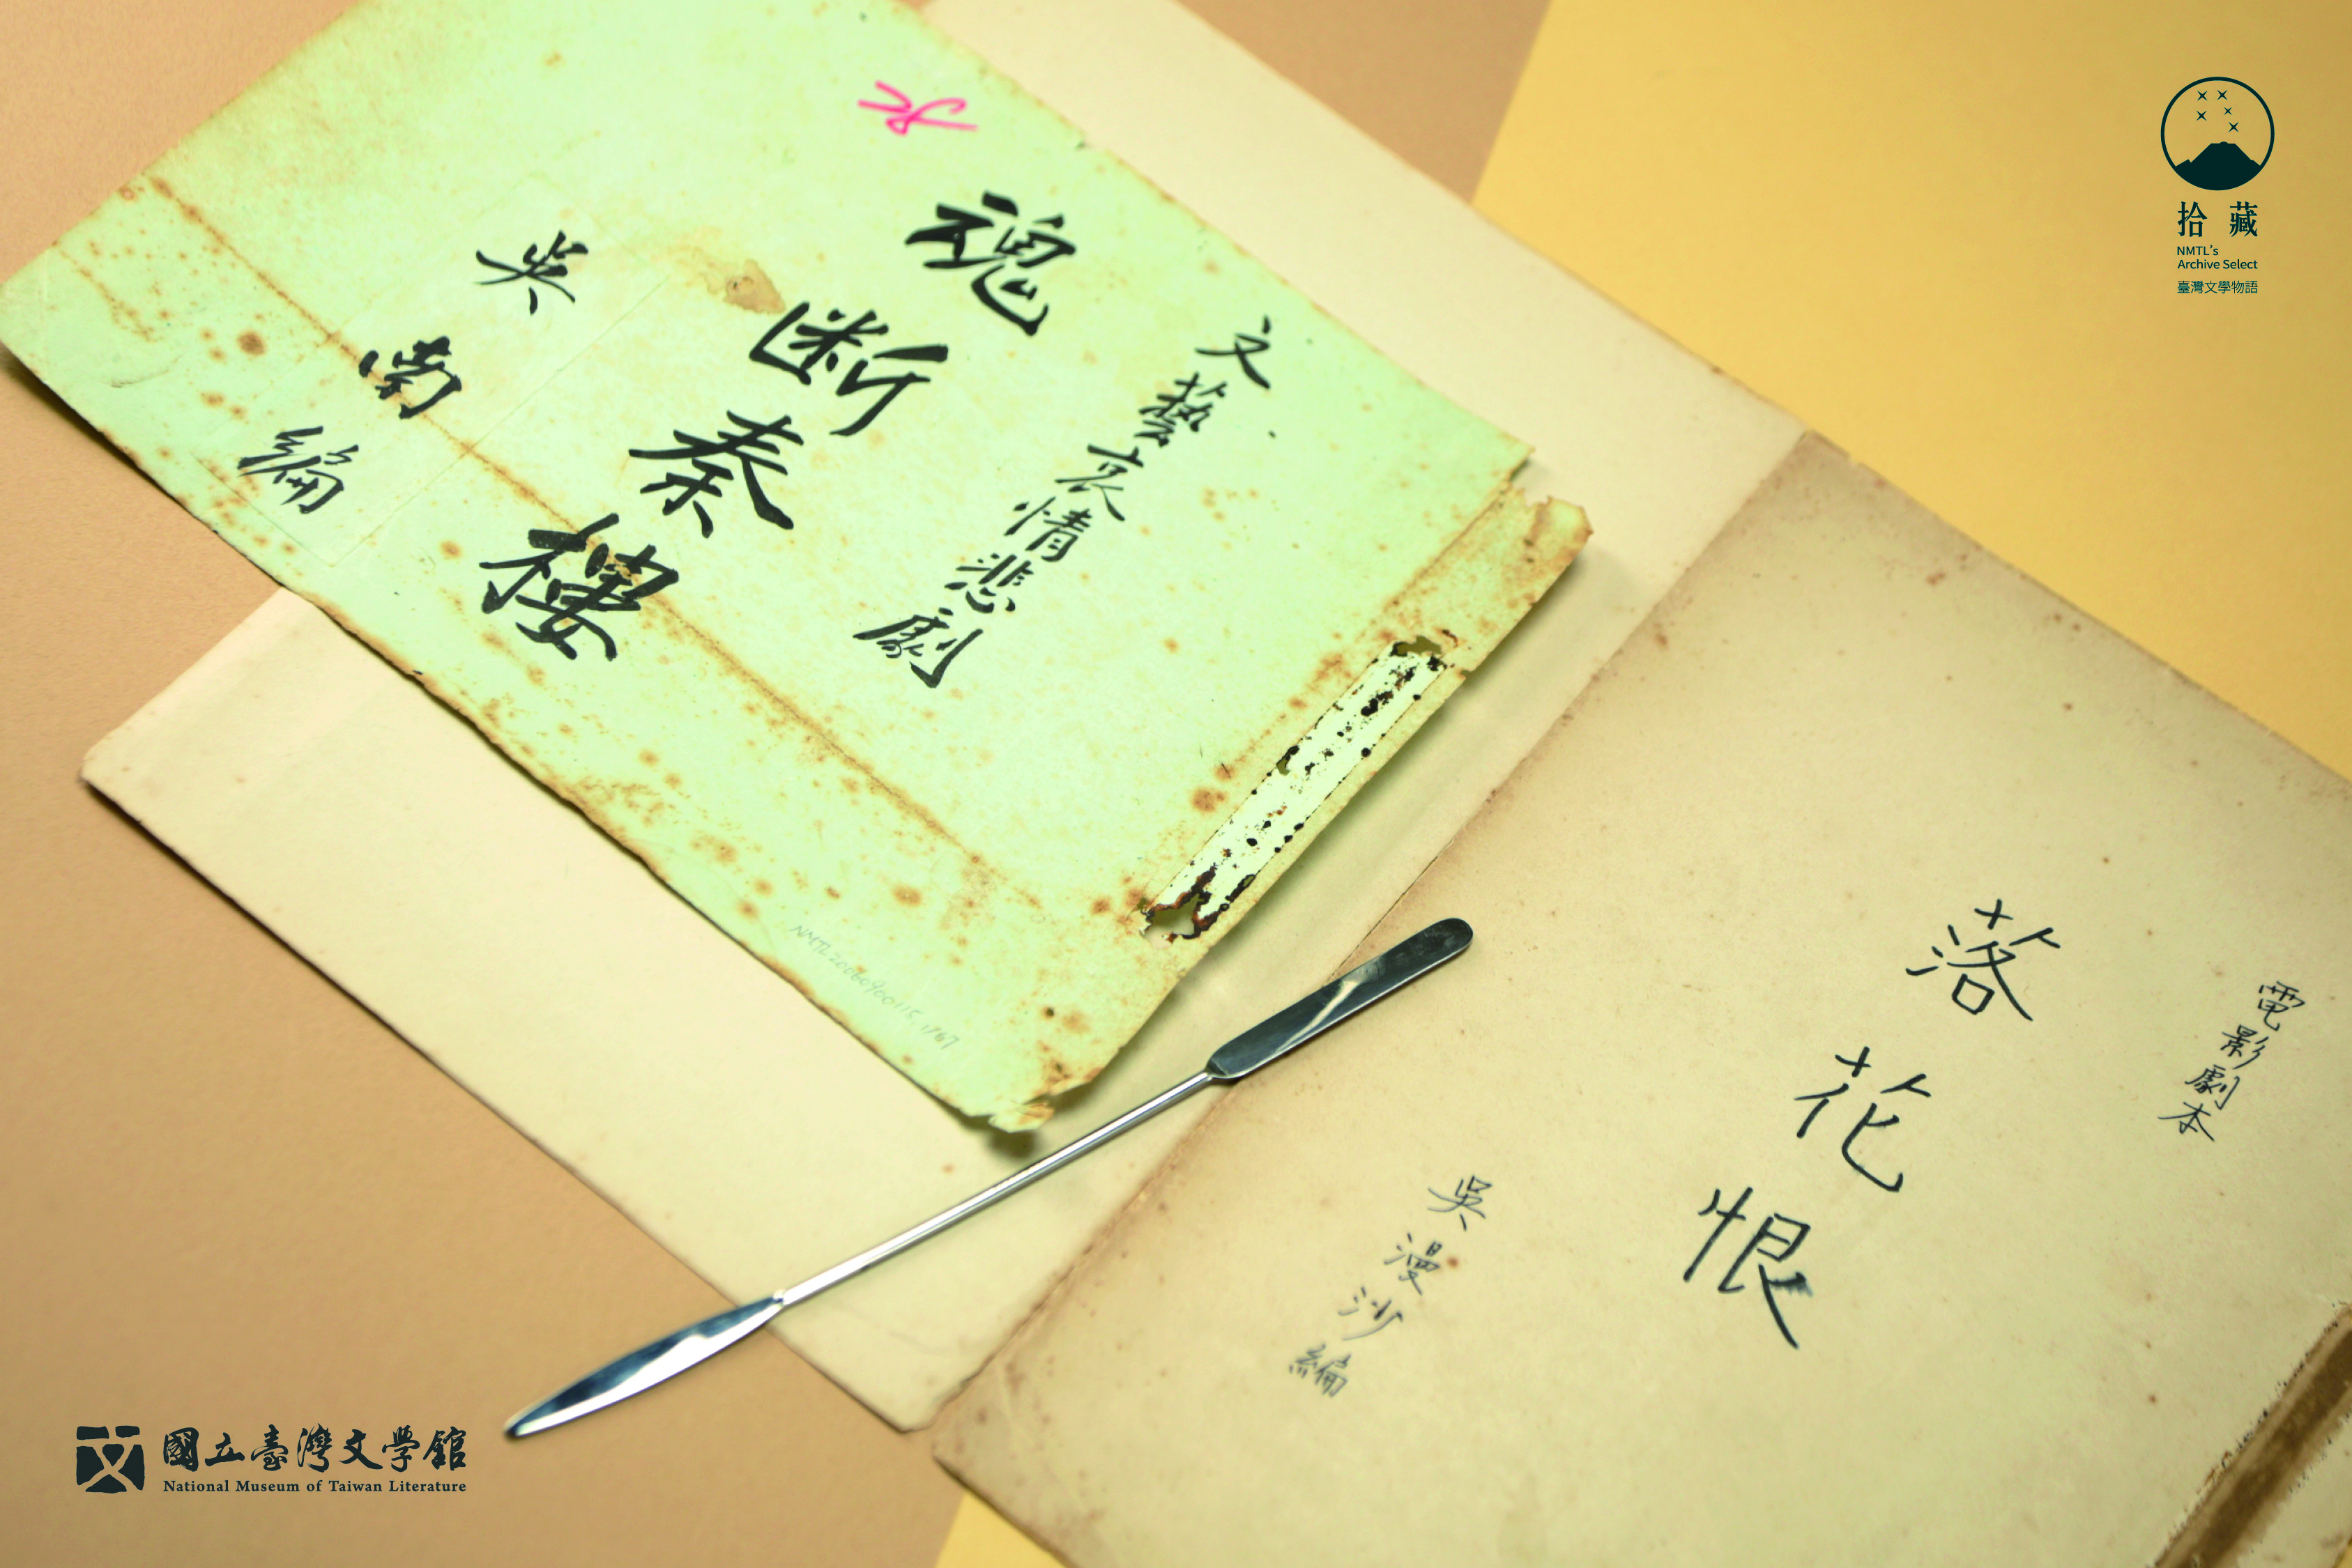 文藝哀情悲劇
魂断秦樓
吳南編
NMTL20060900115.1767
電影劇本
落花恨
吳漫沙編
拾藏
NMTL's
Archive Select
臺灣文學物語
國立臺灣文學館
National Museum of Taiwan Literature